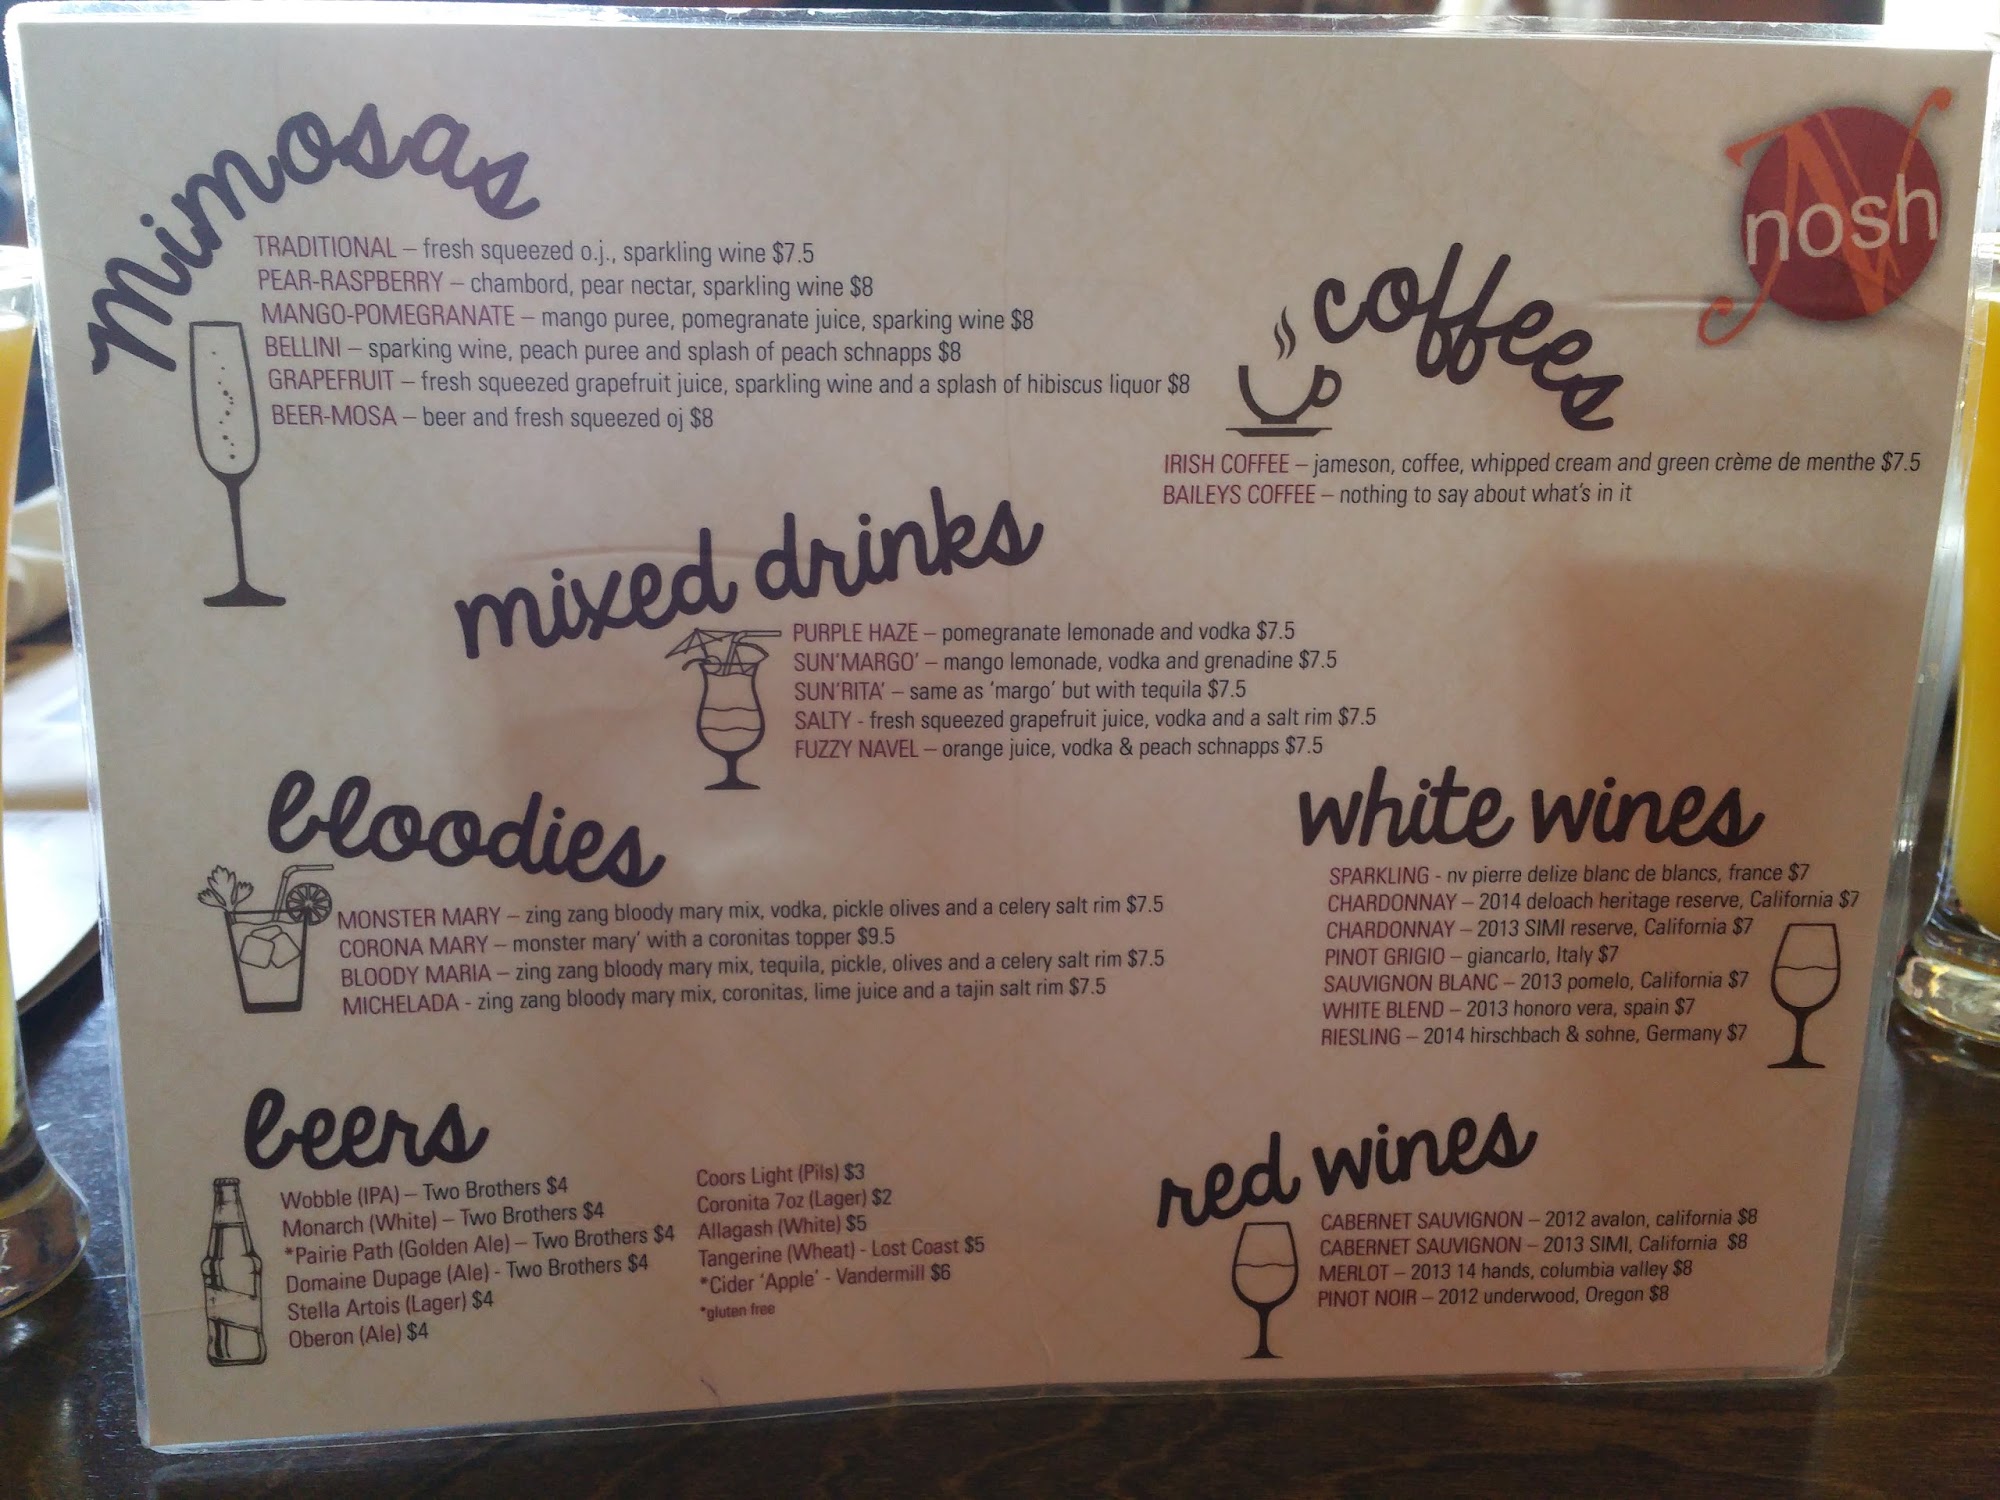 mimosas
TRADITIONAL – fresh squeezed o.j., sparkling wine $7.5
PEAR-RASPBERRY – chambord, pear nectar, sparkling wine $8
MANGO-POMEGRANATE – mango puree, pomegranate juice, sparking wine $8
BELLINI – sparking wine, peach puree and splash of peach schnapps $8
GRAPEFRUIT – fresh squeezed grapefruit juice, sparkling wine and a splash of hibiscus liquor $8
BEER-MOSA – beer and fresh squeezed oj $8
N
nosh
coffees
IRISH COFFEE – jameson, coffee, whipped cream and green crème de menthe $7.5
BAILEYS COFFEE – nothing to say about what's in it
mixed drinks
PURPLE HAZE – pomegranate lemonade and vodka $7.5
SUN'MARGO' – mango lemonade, vodka and grenadine $7.5
SUN'RITA' – same as 'margo' but with tequila $7.5
SALTY - fresh squeezed grapefruit juice, vodka and a salt rim $7.5
FUZZY NAVEL – orange juice, vodka & peach schnapps $7.5
bloodies
MONSTER MARY – zing zang bloody mary mix, vodka, pickle olives and a celery salt rim $7.5
CORONA MARY – monster mary' with a coronitas topper $9.5
BLOODY MARIA – zing zang bloody mary mix, tequila, pickle, olives and a celery salt rim $7.5
MICHELADA - zing zang bloody mary mix, coronitas, lime juice and a tajin salt rim $7.5
white wines
SPARKLING - nv pierre delize blanc de blancs, france $7
CHARDONNAY – 2014 deloach heritage reserve, California $7
CHARDONNAY – 2013 SIMI reserve, California $7
PINOT GRIGIO – giancarlo, Italy $7
SAUVIGNON BLANC – 2013 pomelo, California $7
WHITE BLEND – 2013 honoro vera, spain $7
RIESLING – 2014 hirschbach & sohne, Germany $7
beers
Wobble (IPA) – Two Brothers $4
Monarch (White) – Two Brothers $4
*Pairie Path (Golden Ale) – Two Brothers $4
Domaine Dupage (Ale) - Two Brothers $4
Stella Artois (Lager) $4
Oberon (Ale) $4
Coors Light (Pils) $3
Coronita 7oz (Lager) $2
Allagash (White) $5
Tangerine (Wheat) - Lost Coast $5
*Cider 'Apple' - Vandermill $6
*gluten free
red wines
CABERNET SAUVIGNON – 2012 avalon, california $8
CABERNET SAUVIGNON – 2013 SIMI, California $8
MERLOT – 2013 14 hands, columbia valley $8
PINOT NOIR – 2012 underwood, Oregon $8